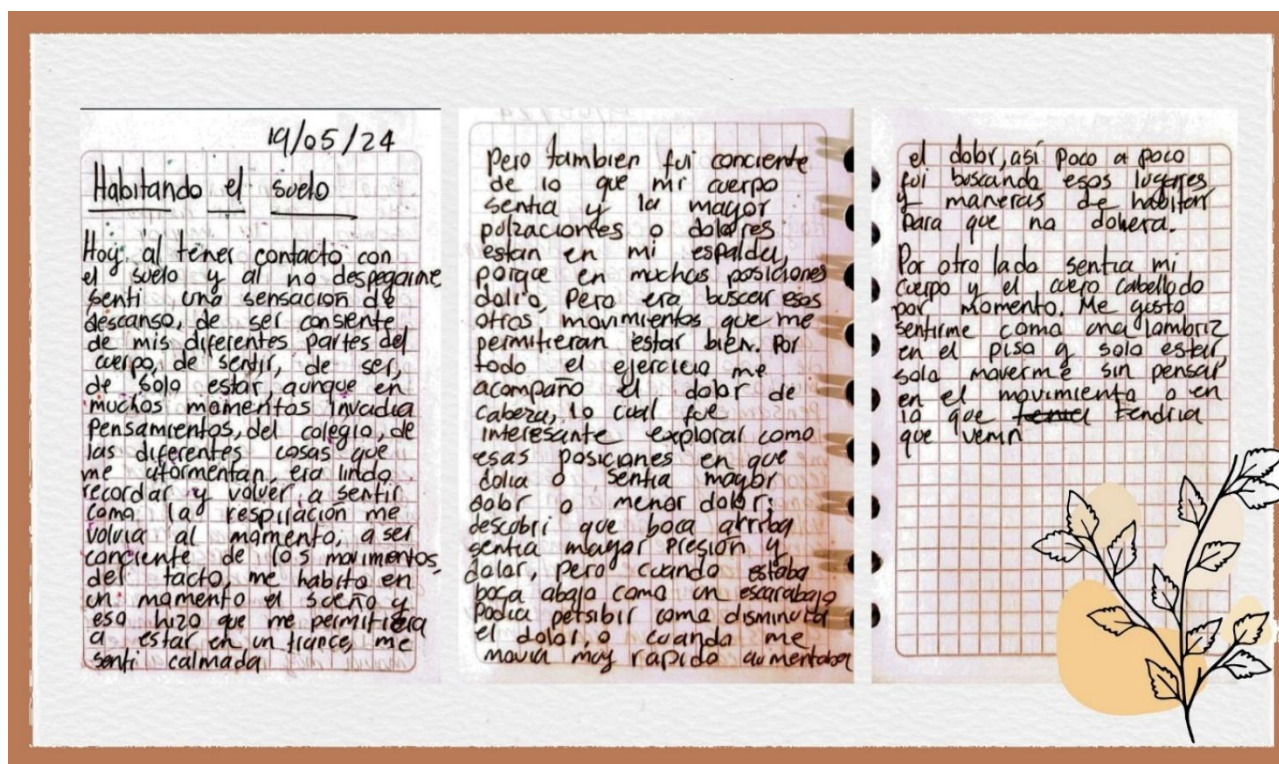 19/05/24
Habitando el suelo
Hoy, al tener contacto con
el suelo y al no despegarme
senti una sensación de
descanso, de ser consiente
de mis diferentes partes del
cuerpo, de sentir, de ser,
de solo estar aunque en
muchos momentos invadia
pensamientos, del colegio, de
las diferentes cosas que
me atormentan, era lindo
recordar y volver a sentir
como la respiración me
volvia al momento, a ser
conciente de los movimientos,
del tacto, me habito en
un momento el sueño y
eso hizo que me permitiera
a estar en un trance, me
senti calmada
Pero tambien fui conciente
de lo que mi cuerpo
sentia y la mayor
pulzaciones o dolores
estan en mi espalda,
porque en muchas posiciones
dolio, Pero era buscar esos
otros, movimientos que me
permitieran estar bien. Por
todo el ejercicio me
acompaño el dolor de
cabeza, lo cual fue
interesante explorar como
esas posiciones en que
dolia o sentia mayor
dolor o menor dolor;
descobri que boca arriba
sentia mayor presión y
dolor, pero cuando estaba
boca abajo como un escarabajo
Podia persibir como disminuia
el dolor, o cuando me
movia muy rapido aumentaba
el dolor, así poco a poco
fui buscando esos lugares
y maneras de habitar
para que no doliera.
Por otro lado sentia mi
cuerpo y el cuero cabelludo
por momento. Me gusto
sentirme como una lombriz
en el piso y solo estar,
solo moverme sin pensar
en el movimiento o en
lo que tendria
que venir